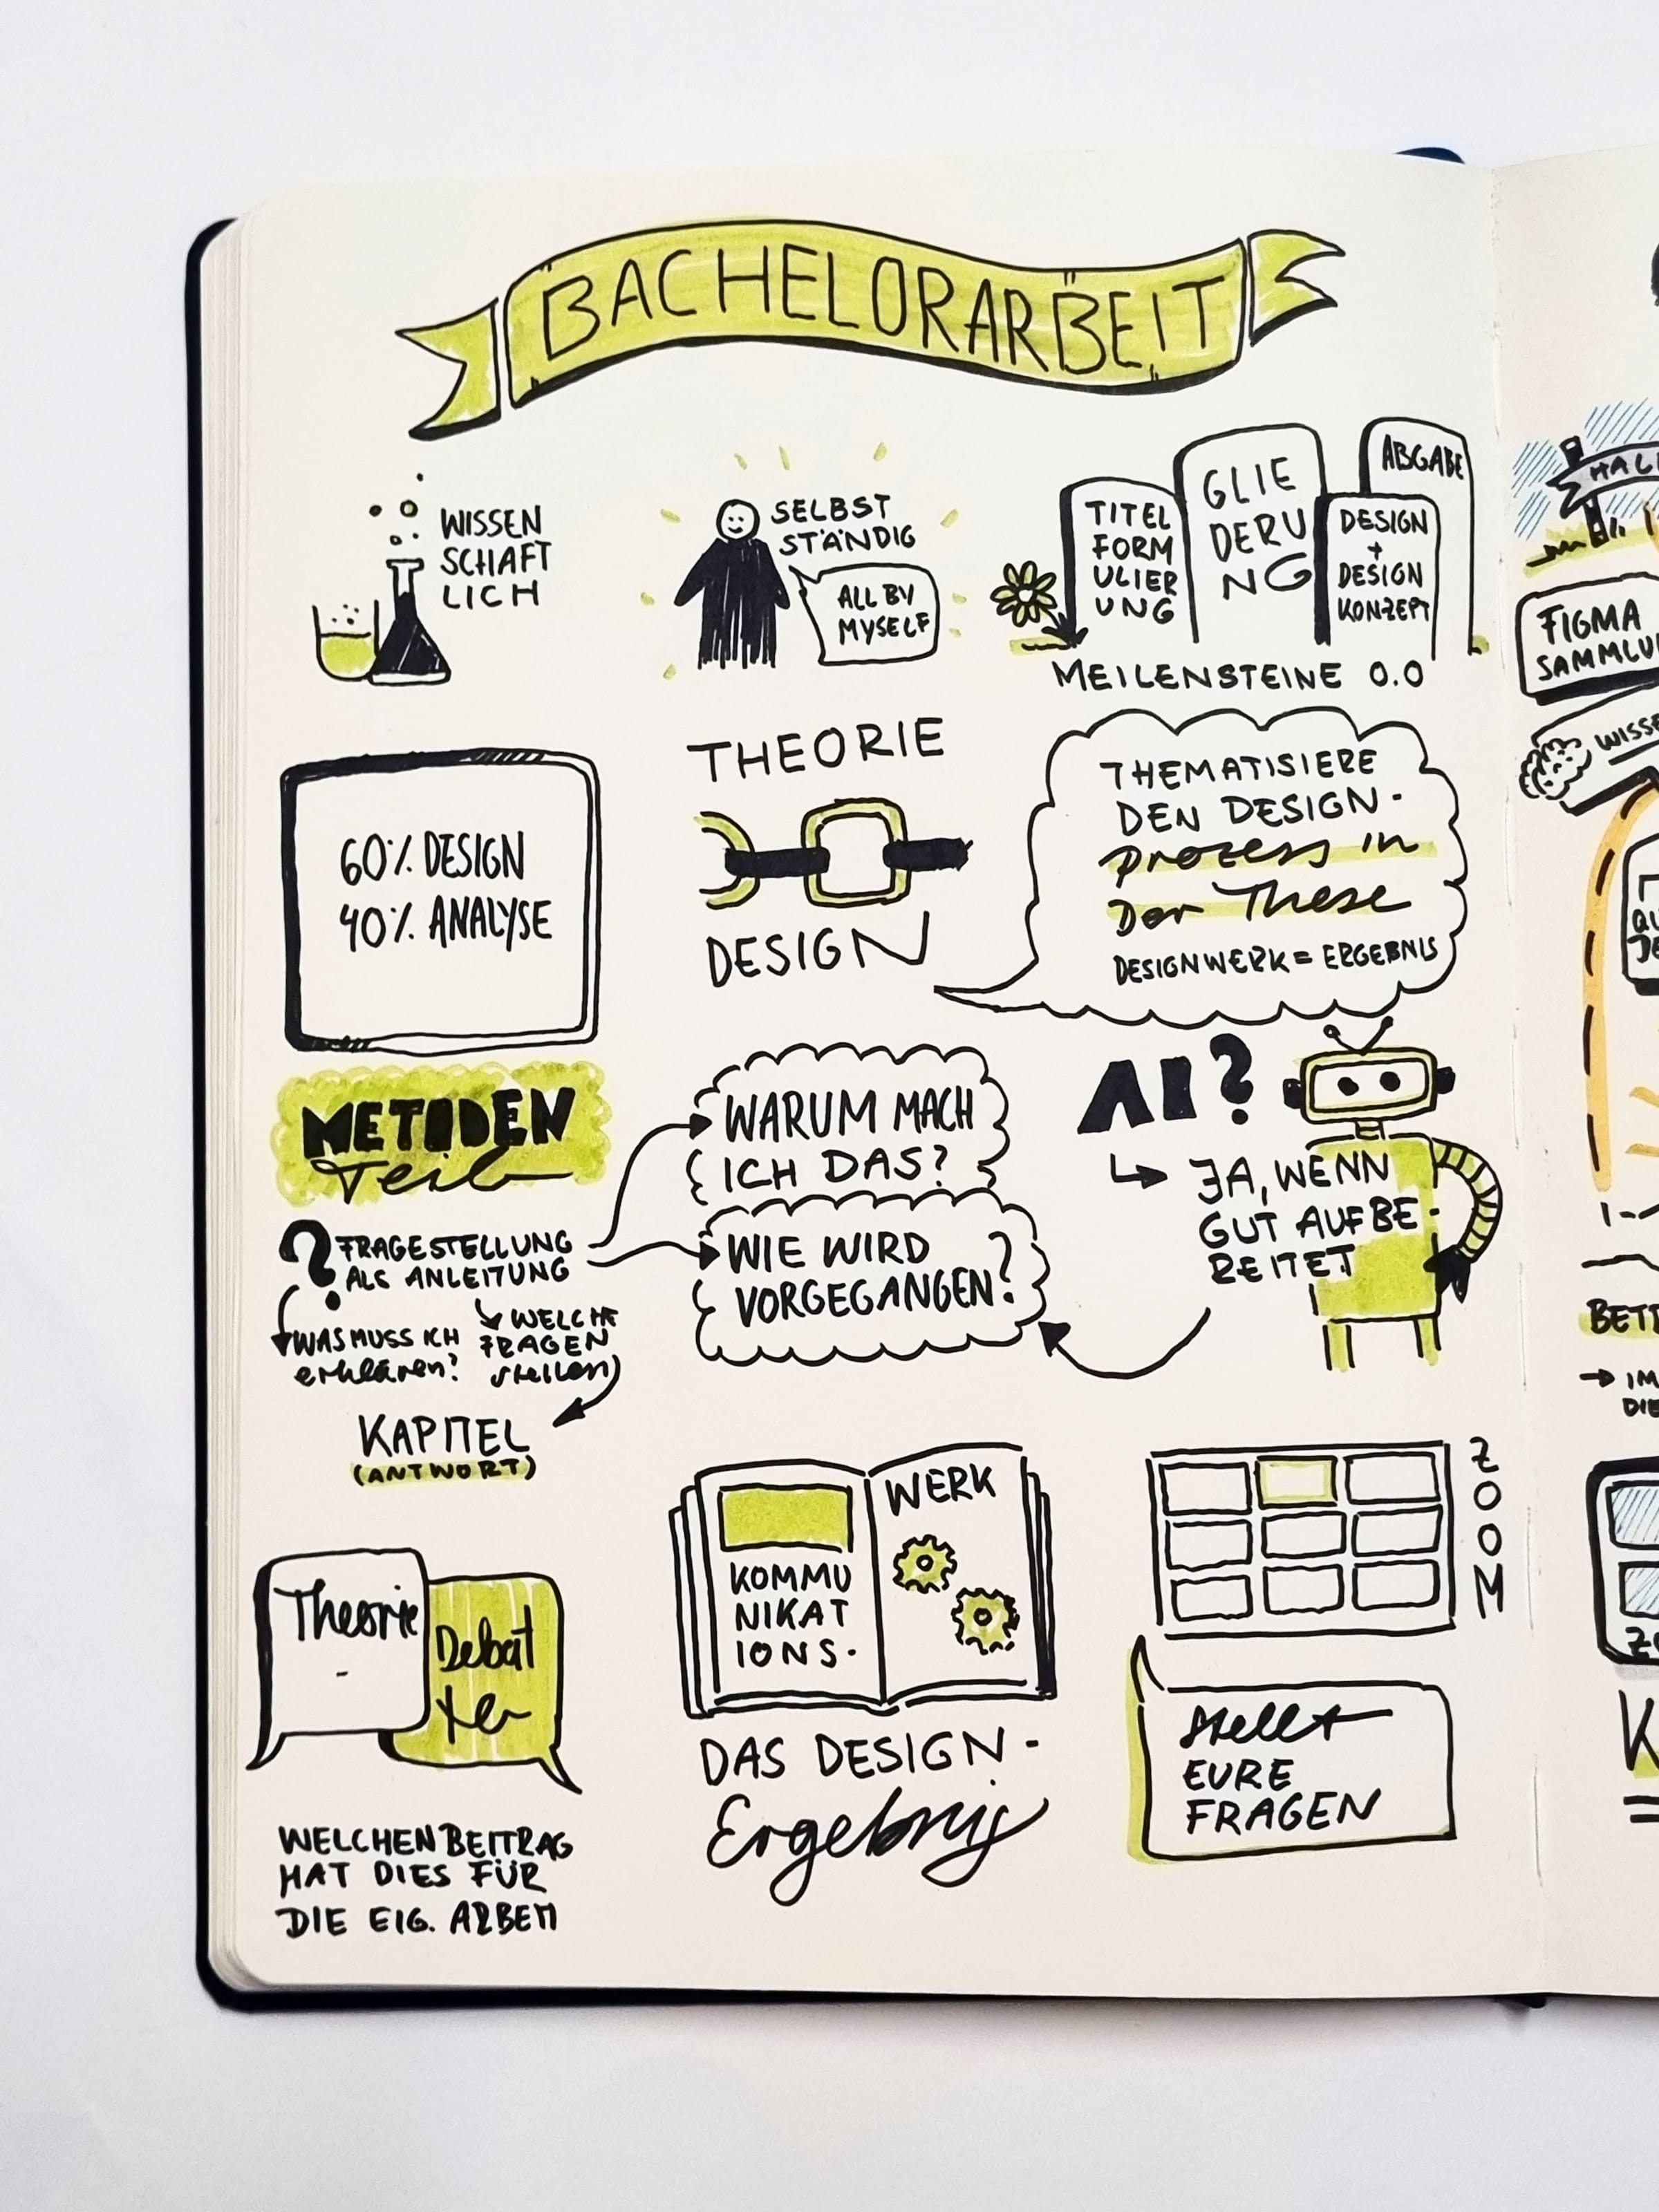 BACHELORARBEIT
WISSEN
SCHAFT
LICH
SELBST
STÄNDIG
ALL BY
MYSELF
TITEL
FORM
ULIER
UNG
GLIE
DERU
NG
ABGABE
DESIGN
+
DESIGN
KONZEPT
MEILENSTEINE 0.0
60% DESIGN
40% ANALYSE
THEORIE
DESIGN
THEMATISIERE
DEN DESIGN-
prozess in
Der These
DESIGNWERK = ERGEBNIS
METODEN
Teil
? FRAGESTELLUNG
ALS ANLEITUNG
WAS MUSS ICH
erklären?
WELCHE
FRAGEN
stellen
KAPITEL
(ANTWORT)
WARUM MACH
ICH DAS?
WIE WIRD
VORGEGANGEN?
AI?
JA, WENN
GUT AUFBE-
REITET
Theorie
-
Debat
ten
WELCHEN BEITRAG
HAT DIES FÜR
DIE EIG. ARBEIT
KOMMU
NIKAT
IONS-
WERK
DAS DESIGN-
Ergebnis
ZOOM
Stellt
EURE
FRAGEN
FIGMA